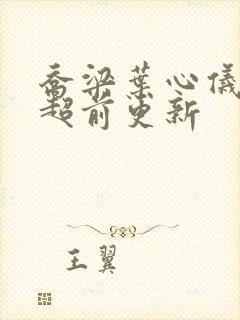 乔梁葉心儀
超前更新
王翼